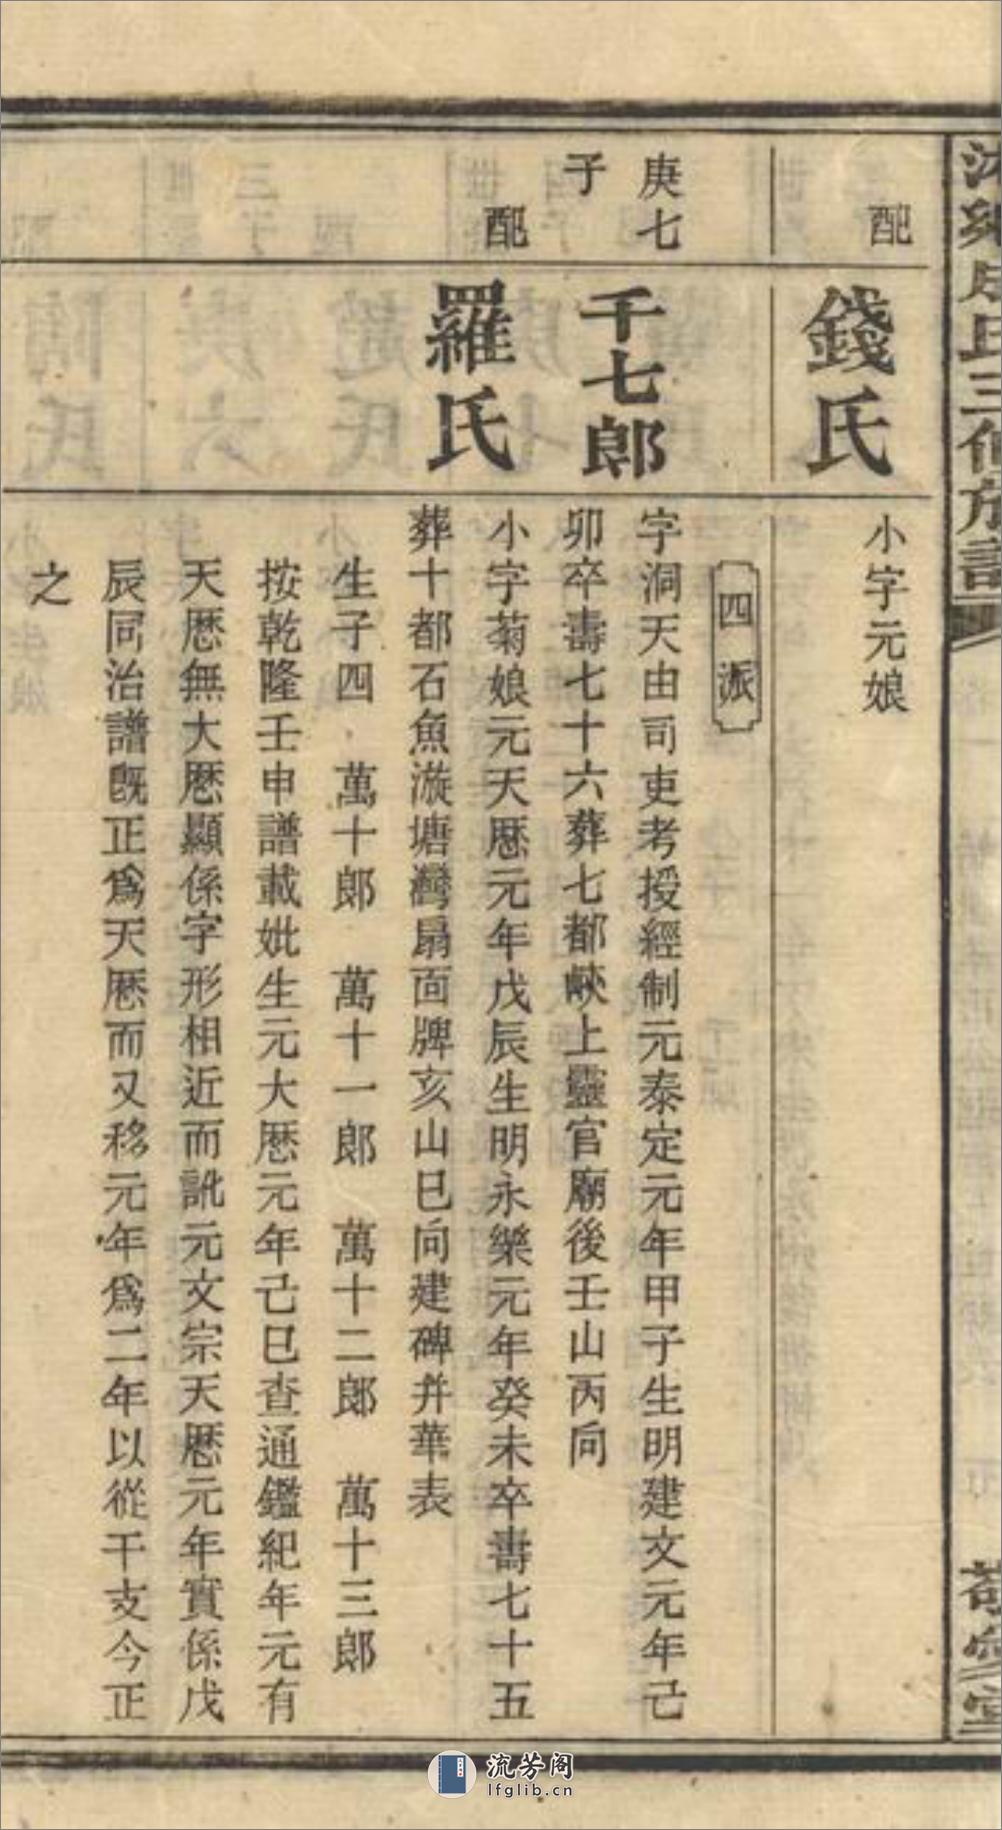 氏三修族譜
配
錢氏
小字元娘
四派
庚七
子
千七郎
字洞天由司吏考授經制元泰定元年甲子生明建文元年己
卯卒壽七十六葬七都峽上靈官廟後壬山丙向
配
羅氏
小字菊娘元天厯元年戊辰生明永樂元年癸未卒壽七十五
葬十都石魚漩塘灣扇面牌亥山巳向建碑幷華表
生子四 萬十郎 萬十一郎 萬十二郎 萬十三郎
按乾隆壬申譜載妣生元大厯元年己巳查通鑑紀年元有
天厯無大厯顯係字形相近而訛元文宗天厯元年實係戊
辰同治譜旣正爲天厯而又移元年爲二年以從干支今正
之
流芳阁
lfglib.cn